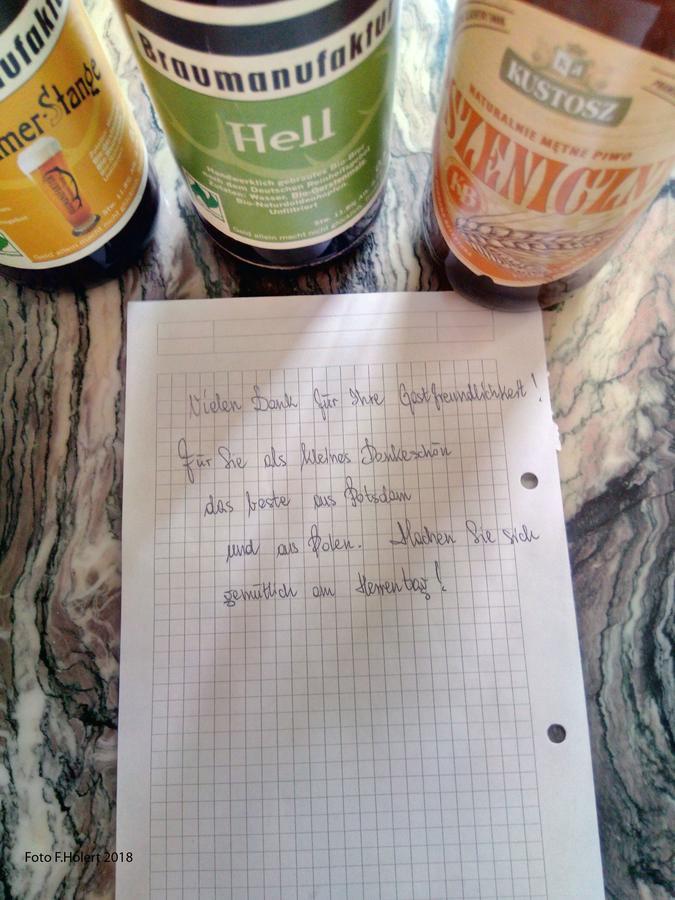 Braumanufaktur
mer-Stange
Hell
Handwerklich gebrautes Bio-Bier
nach dem Deutschen Reinheitsgebot
Zutaten: Wasser, Bio-Gerstenmalz,
Bio-Naturdoldenhopfen.
Unfiltriert
Stw. 11,8%
Geld allein macht nicht
Geld allein macht nicht
KUSTOSZ
NATURALNIE MĘTNE PIWO
SZENICZN
KB
Vielen Dank für Ihre Gastfreundlichkeit!
Für Sie als kleines Dankeschön
das beste aus Potsdam
und aus Polen. Machen Sie sich
gemütlich am Herrentag!
Foto F.Holert 2018